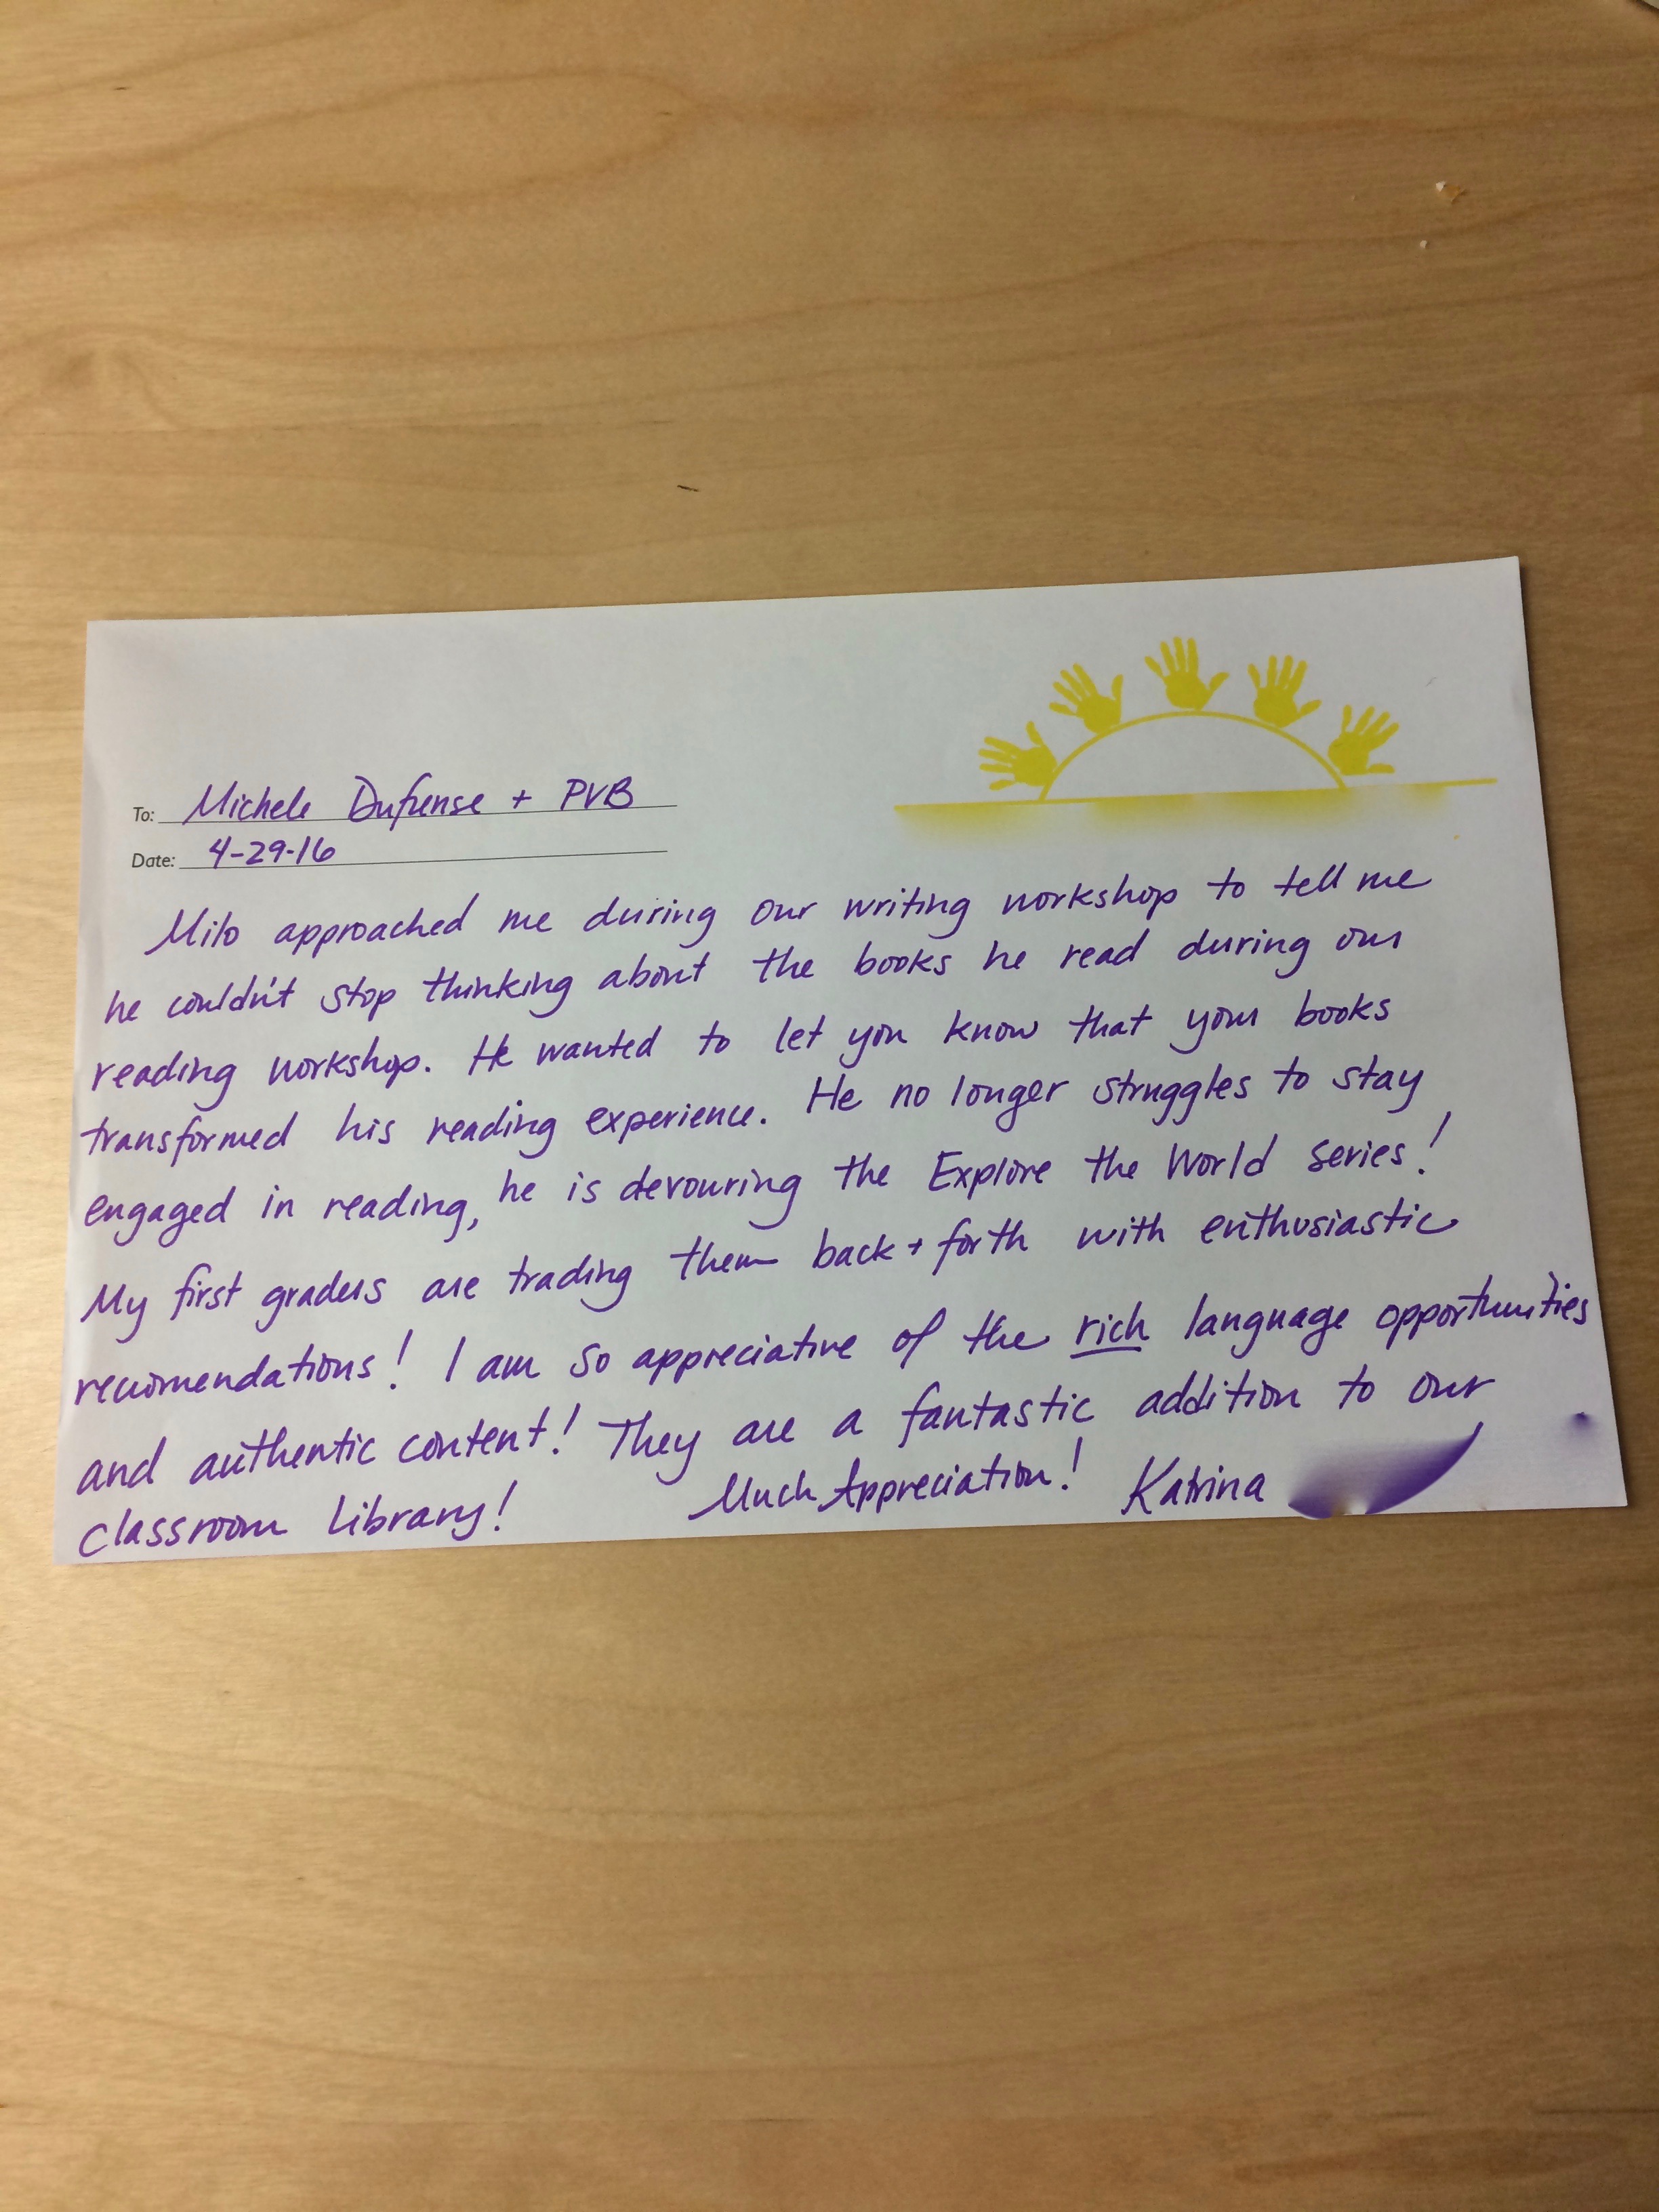 To: Michele Dufrense + PVB
Date: 4-29-16
Milo approached me during our writing workshop to tell me
he couldn't stop thinking about the books he read during our
reading workshop. He wanted to let you know that your books
transformed his reading experience. He no longer struggles to stay
engaged in reading, he is devouring the Explore the World series!
My first graders are trading them back + forth with enthusiastic
recomendations! I am so appreciative of the rich language opportunities
and authentic content! They are a fantastic addition to our
classroom library! Much Appreciation! Katrina